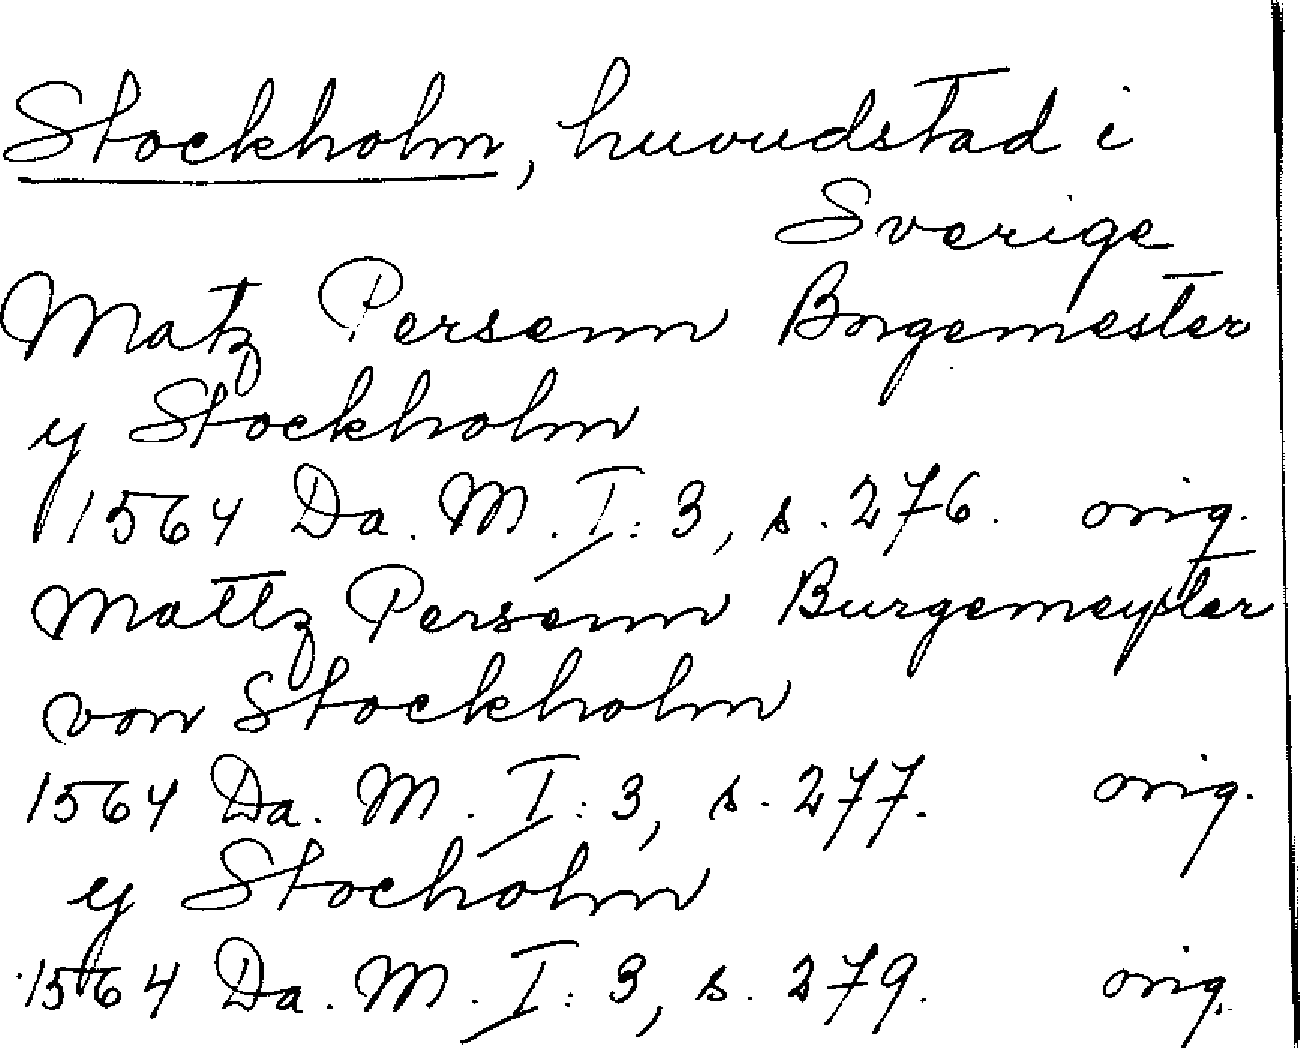 Stockholm, huvudstad i
Sverige
Matz Persenn Borgemester
y Stockholm
1564 Da. M. I: 3, s. 276. orig.
Mattz Persenn Burgemeyster
von Stockholm
1564 Da. M. I: 3, s. 277. orig.
y Stocholm
1564 Da. M. I: 3, s. 279. orig.